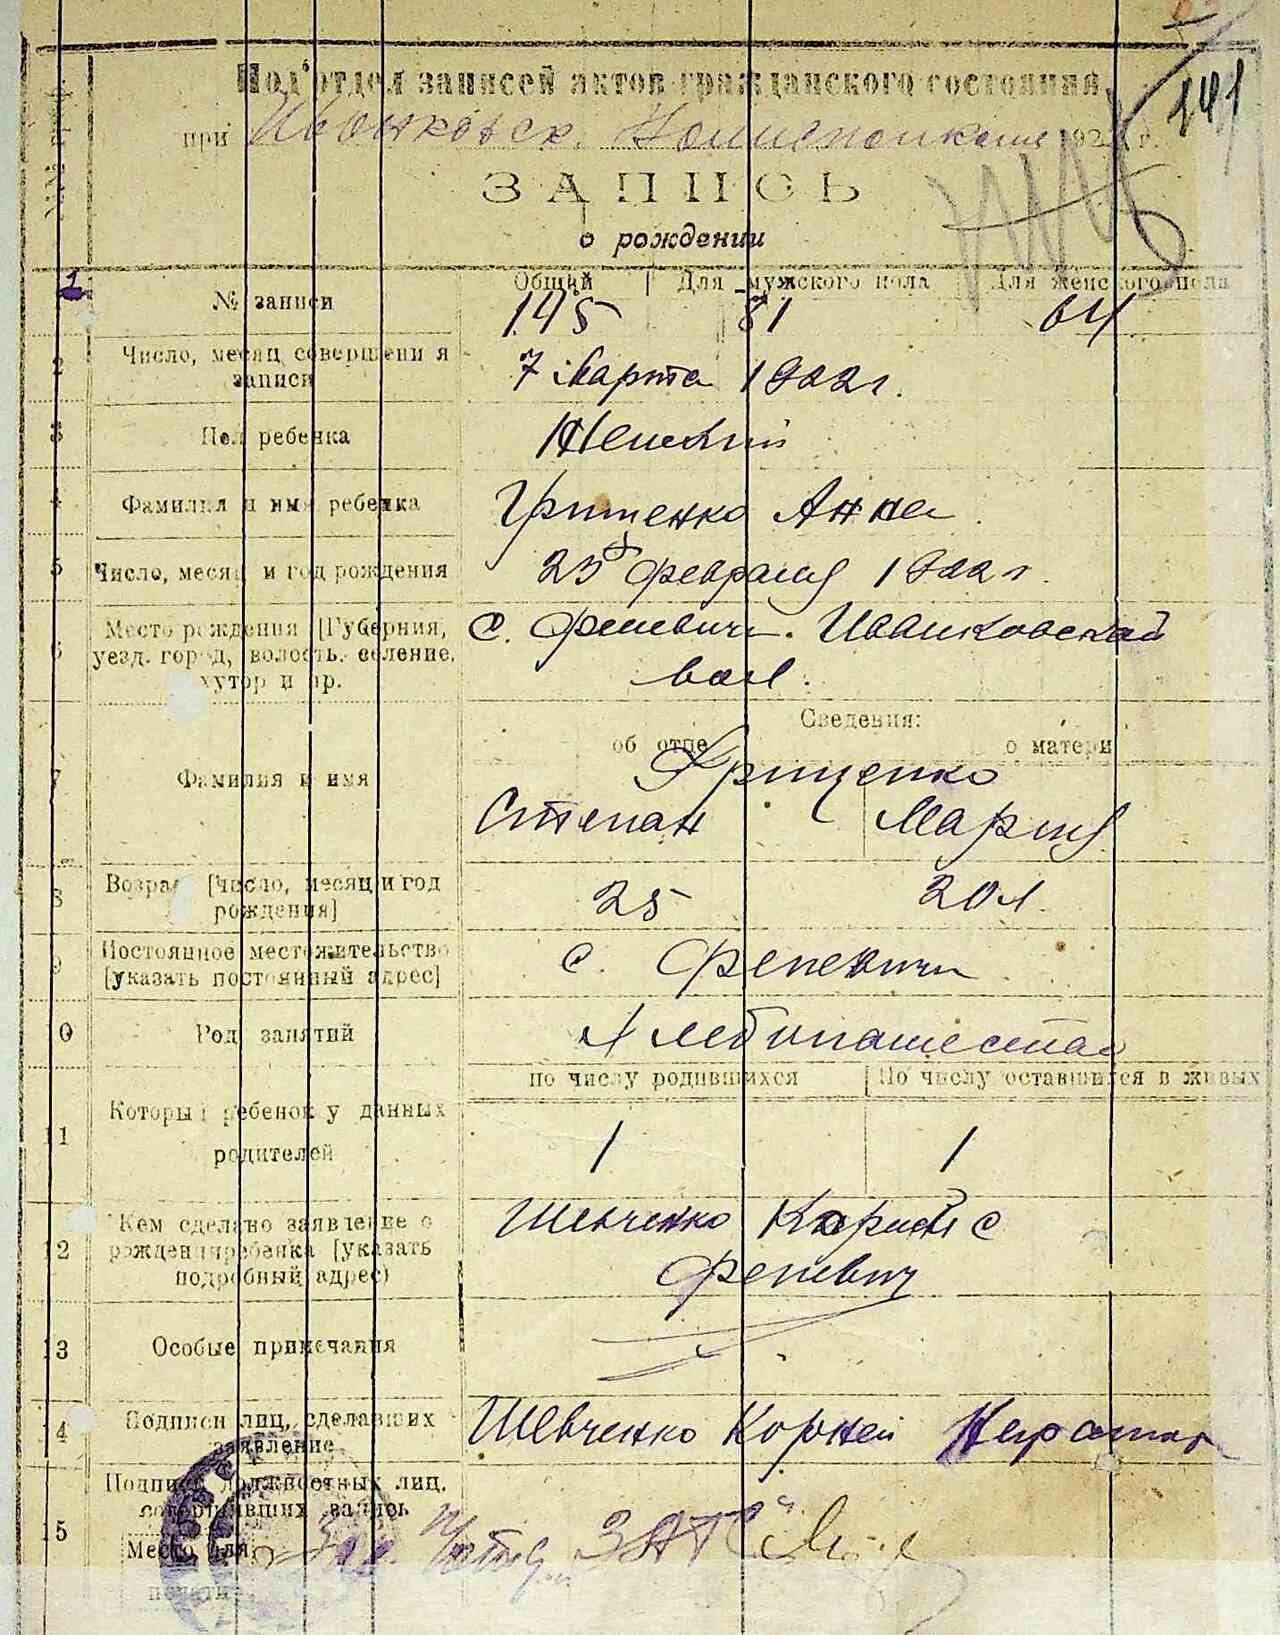 141
Под'отдел записей актов гражданского состояния,
при Иванковск. Волисполкоме 192 г.
ЗАПИСЬ
о рождении
1 № записи Общий Для мужского пола Для женского пола
145 81 64
2 Число, месяц совершения записи 7 Марта 1922 г.
3 Пол ребенка Женский
4 Фамилия и имя ребенка Грищенко Анна
5 Число, месяц и год рождения 23 февраля 1922 г.
6 Место рождения [Губерния, с. Феневичи. Иванковской
уезд. город, волость. селение, вол.
хутор и пр.
Сведения:
об отце о матери
7 Фамилия и имя Грищенко
Степан Мария
8 Возраст [число, месяц и год 25 20 л.
рождения]
9 Постоянное местожительство с. Феневичи
[указать постоянный адрес]
10 Род занятий Хлебопашество
по числу родившихся По числу оставшихся в живых
11 Который ребенок у данных
родителей 1 1
12 Кем сделано заявление о Шевченко Корней с
рождении ребенка [указать Феневич
подробный адрес)
13 Особые примечания
14 Подписи лиц, сделавших Шевченко Корней Неграмот
заявление
Подписи должностных лиц,
совершивших запись
15 Место для Зав. ЗАГС
печати